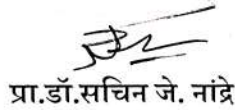 प्रा.डॉ.सचिन जे. नांद्रे